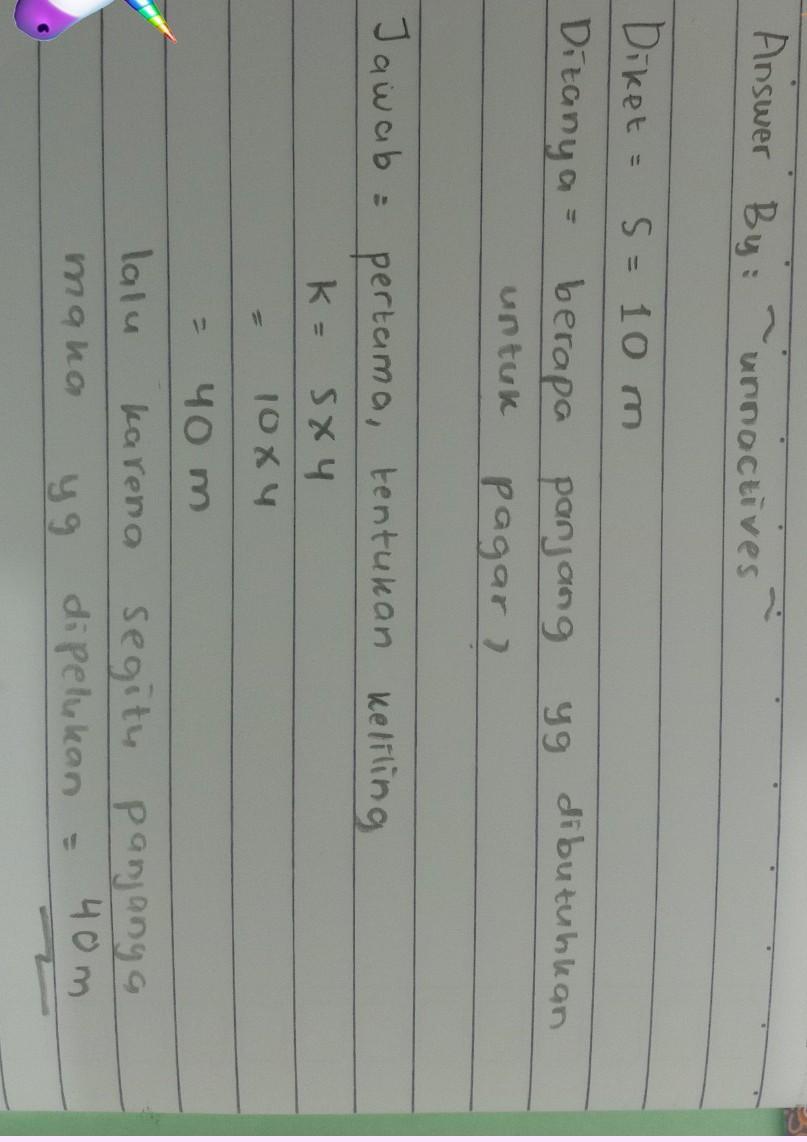 Answer By: ~unnactives~
Diket = S = 10 m
Ditanya = berapa panjang yg dibutuhkan
untuk pagar?
Jawab = pertama, tentukan keliling
K = s x 4
= 10 x 4
= 40 m
lalu karena segitu panjanya
maka yg dipelukan = 40 m